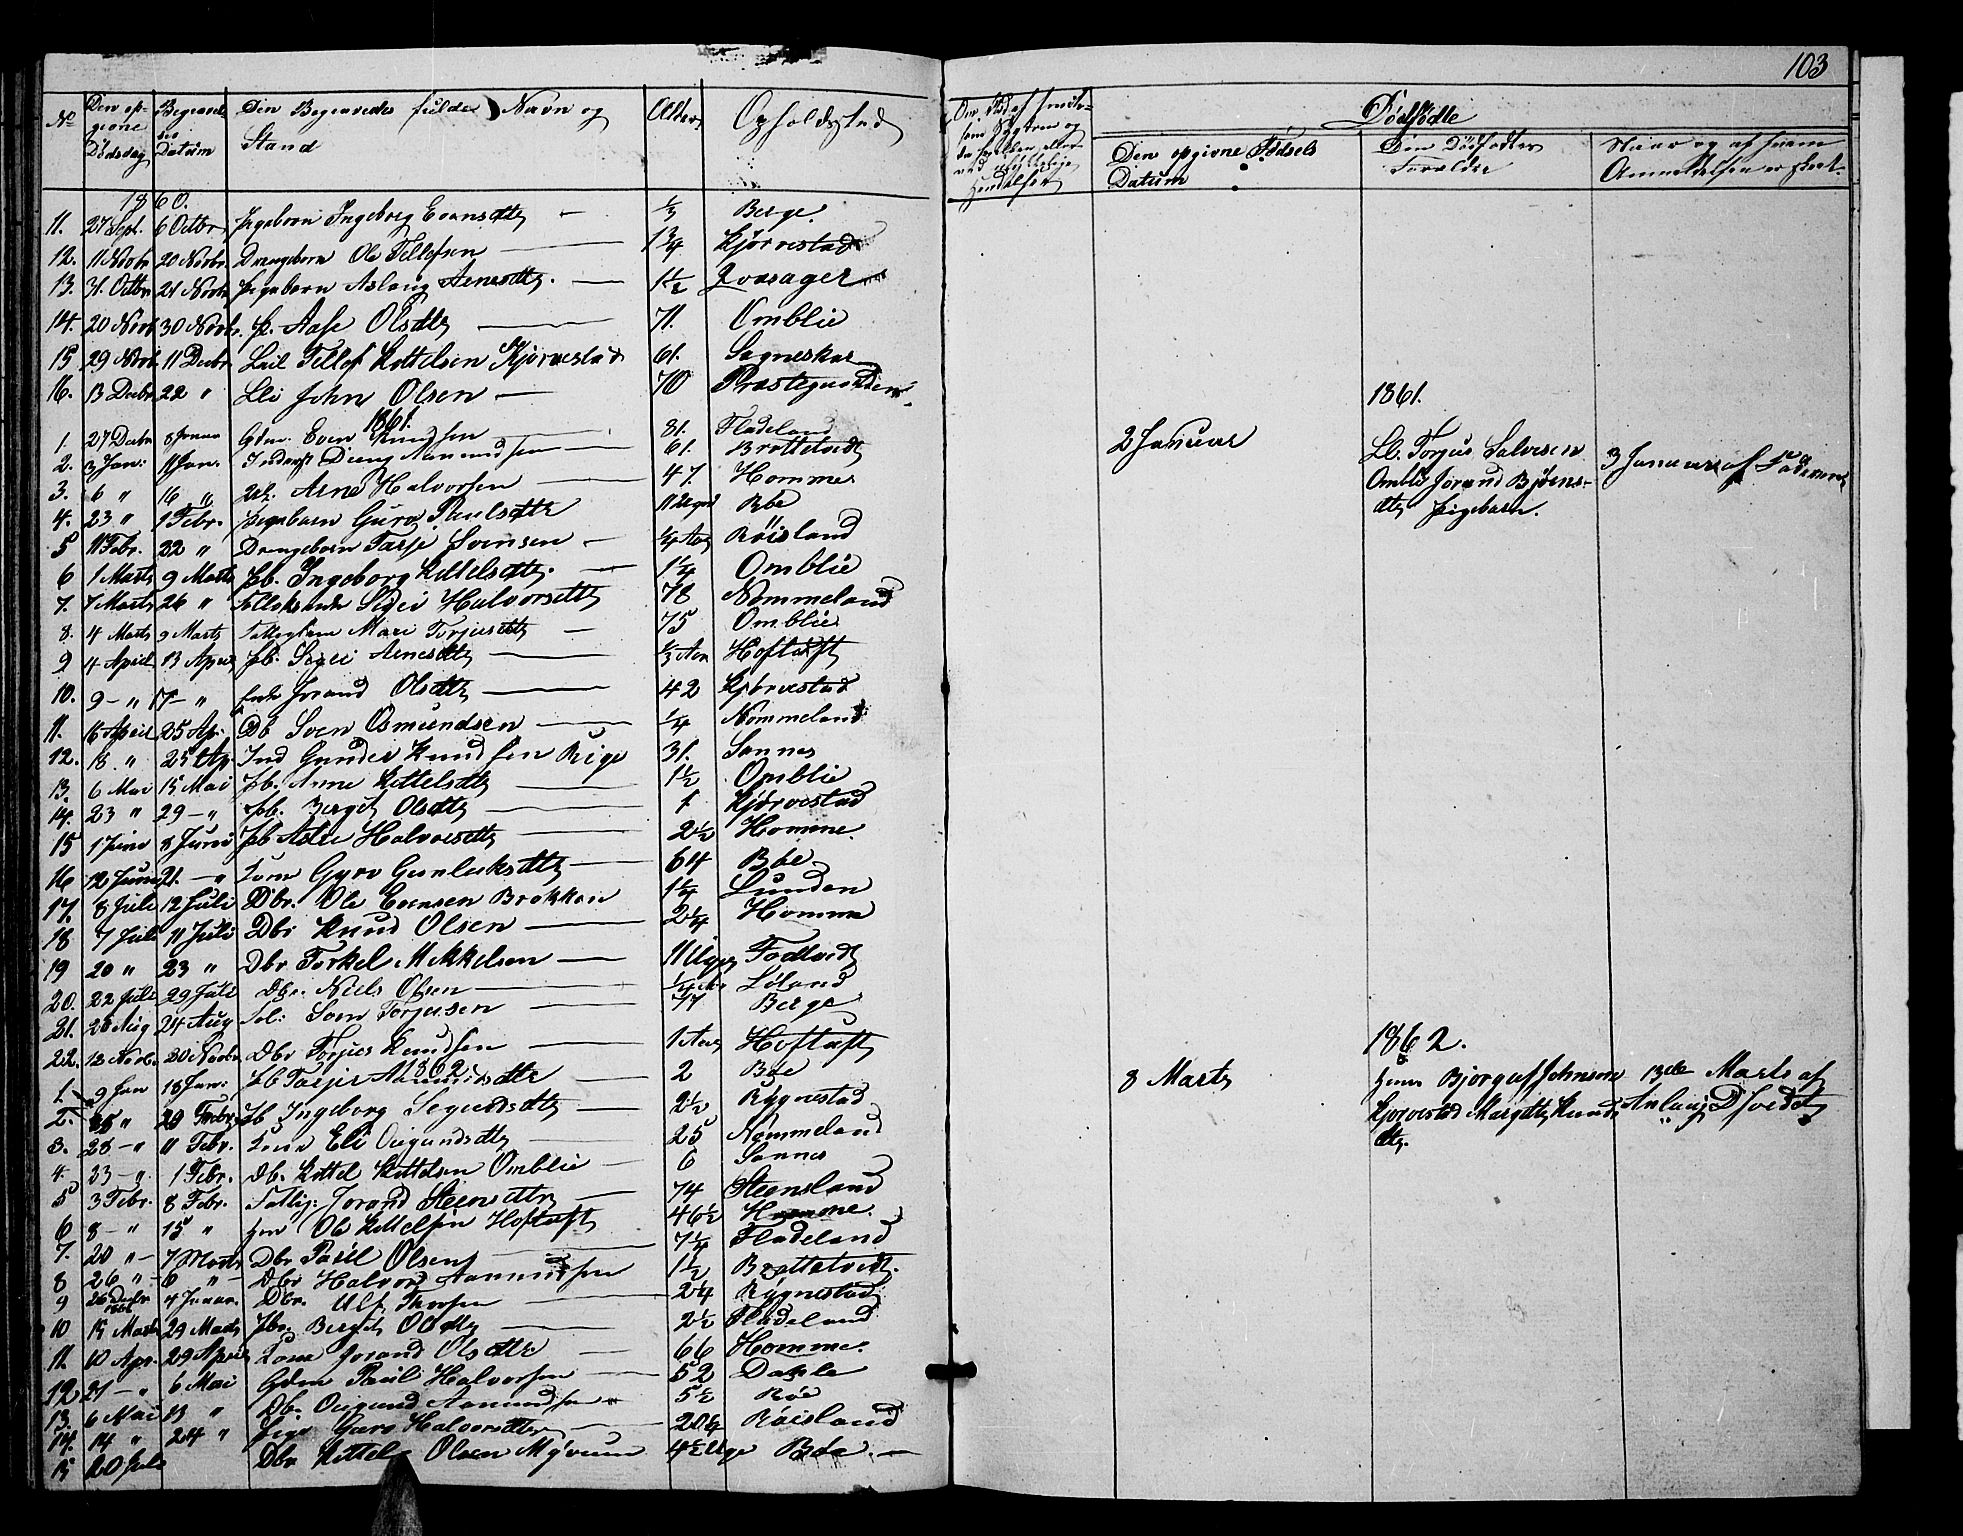 103
No Den opgivne Dødsdag Begravelses Datum Den Begravedes fulde Navn og Stand Alder Opholdssted
Dødfødte
Den opgivne Fødsels Datum Den Dødfødtes Forældre Naar og af hvem Anmeldelsen er skeet
1860.
11. 27 Sept. 6 Octbr Pigebarn Ingeborg Evensdtr 1/3 Berge
12. 11 Novbr 20 Novbr. Drengebarn Ole Tellefsen 1 3/4 Kjørvestad
13. 31. Octbr 21 Novbr Pigebarn Aslaug Arnesdtr. 1 1/2
14. 20 Novb 30 Novbr. P. Aase Olsdtr 71. Omblie
15 29 Novb. 11 Decbr Tellef Kittelsen Kjørvestad 61. Sagneskar
16. 13 Decbr 22 " John Olsen 70 Præstegaarden
1861.
1. 27 Decbr 8 Januar Gdm. Even Knudsen 81. Fladeland
2. 3 Jan: 11 Jan. Inderst Dreng Aanundsen 61. Brottetvedt
3. 6 " 16 " Arne Halvorsen 47. Homme
4. 23 " 1 Febr. Pigebarn Guro Paulsdtr 11 Uger Bøe
5 11 Febr. 22 " Drengebarn Tarje Svensen 1/4 Aar Røisland
6 1 Marts 9 Marts Pb. Ingeborg Kittelsdtr. 1 1/4 Omblie
7. 7 Marts 26 " Sigri Halvorsdtr 78 Nommeland
8. 4 Marts 9 Marts Mari Torjusdtr 75 Omblie
9 4 April 13 April Pb. Sigri Arnesdtr 1/3 Aar Hoftuft
10. 9 - " 17 - " Enke Jorand Olsdtr 42 Kjørvestad
11. 16 April 25 Ap. Db Sven Osmundsen 1/4 Nommeland
12. 18 " 25 Ap. Ind Gunder Knudsen Rige 31. Sannes
13. 6 Mai 15 Mai Pb. Anne Kittelsdtr 1 1/2 Omblie
14. 23 " 29 - " Pb. Bergit Olsdtr 1 Kjørvestad
15 1 Juni 8 Juni Pb Aslie Halvorsdtr 2 1/2 Homme.
16 12 Juni 21. - " Kone Gyro Gunleiksdtr 64 Bøe
17. 8 Juli 12 Juli Dbr. Ole Evensen Brokken 1 1/4 Lunden
18 7 Juli 11 Juli Dbr Knud Olsen 2 1/4 Homme
19 20 " 23 " Dbr Torkel Mikkelsen 11 Uger
20. 22 Juli 29 Juli Dbr. Niels Olsen 1/4 Løland
21. 20 Aug 24 Aug Sven Torjusen 77 Berge
22. 12 Novbr. 20 Novbr. Dbr Torjus Knudsen 1 Aar Hoftuft
1862
1. 9 Jan 18 Jan: Pb Tarjer Aanundsdtr 2 Bøe
2. 25 " 20 Febr. Pb Ingeborg Sigurdsdtr 2 1/2 Rygnestad
3. 28 - " 11 Febr. Kone Eli Ougundsdtr 25 Nommeland
4. 23 - " 1 Febr. Db. Kittel Kittelsen Omblie 6 Sannes
5 3 Febr. 8 Febr. Jorand Steensdtr 74 Steensland
6 8 - " 15 " Ole Kittelsen Hoftuft 46 1/2 Homme.
7. 20 " - 7 Marts Dbr Paul Olsen 7 1/4 Fladeland
8 26 " - 6 " - Dbr Halvord Aanundsen 1 1/2 Brottetvedt.
9 26 Decbr 1861 4 Januar. Dbr. Ulf Thorsen 2 1/4 Rygnestad
10 15 Marts 29 Marts Pbr. Bergit Olsdtr 2 1/2 Fladeland
11. 10 Apr. 29 April Kone Jorand Olsdtr 66 Homme.
12 21 - " 6 Mai Gdm Paul Halvorsen 52 Dahle
13. 6 Mai 13 " Db. Ougund Aanundsen 5 1/2 Bøe
14. 14 " 24 " Pige Guro Halvorsdtr 20 1/2 Røisland
15 20 Juli Dbr Kittel Olsen Myrum 4 1/2 Uge Bøe.
1861.
2 Januar Torjus Salvesen Omblie Jorand Bjørnsdtr Pigebarn. 3 Januar af Faderen
1862.
8 Marts Bjørgulf Johnsen Kjørvestad Margit Knudsdtr. 13de Marts af Aslaug